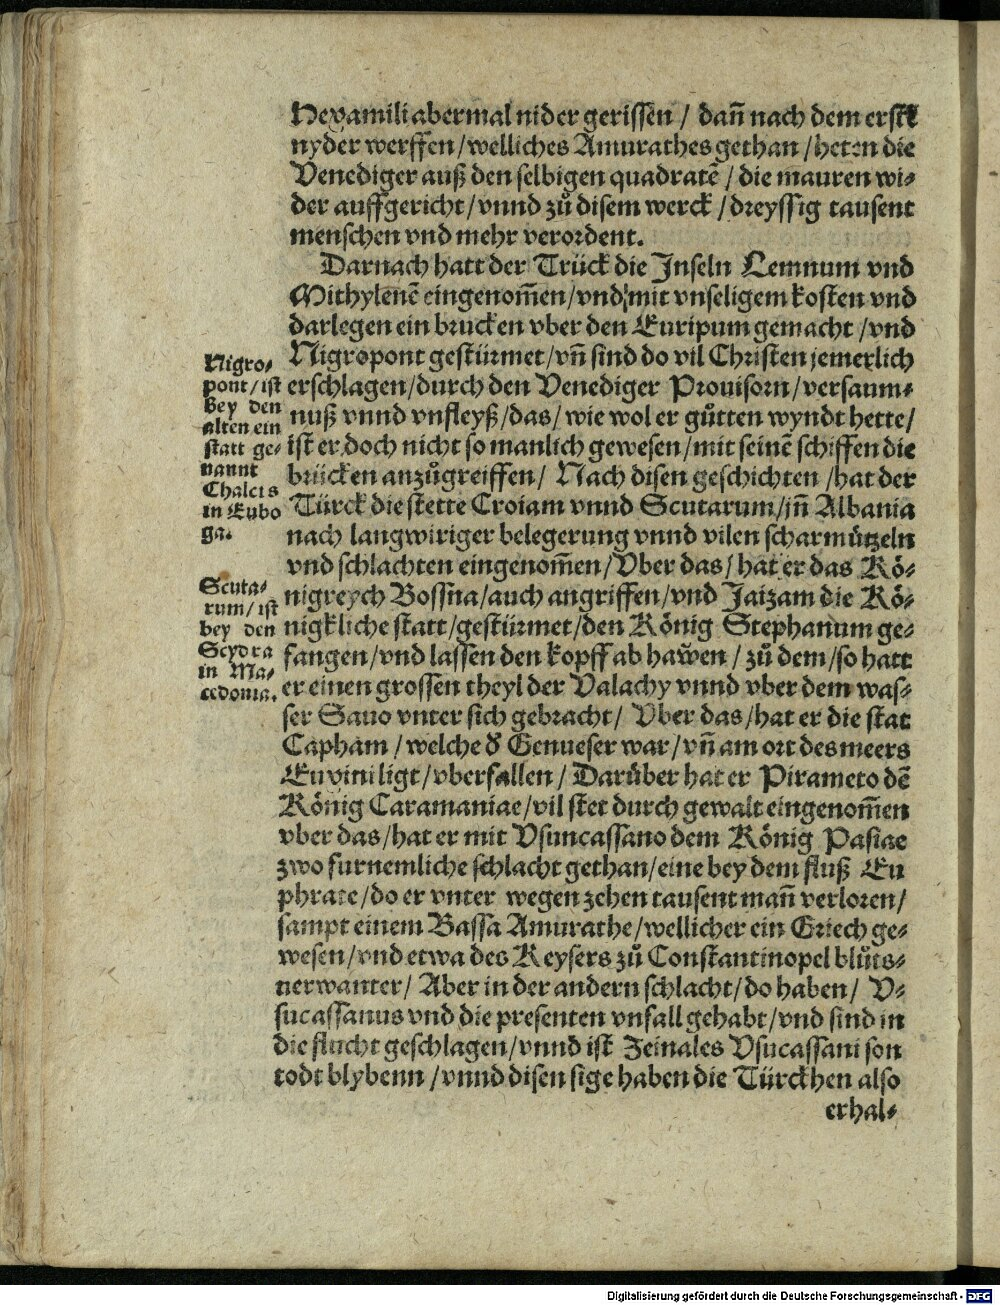 Hexamili abermal nider gerissen / dañ nach dem erstē
nyder werffen / welliches Amurathes gethan / heten die
Venediger auß den selbigen quadratē / die mauren wi-
der auffgericht / vnnd zů disem werck / dreyssig tausent
menschen vnd mehr verordent.
Darnach hatt der Trück die Inseln Lemnum vnd
Mithylenē eingenom̃en / vnd mit vnseligem kosten vnd
darlegen ein brucken vber den Euripum gemacht / vnd
Nigropont gestürmet / vñ sind do vil Christen jemerlich
erschlagen / durch den Venediger Prouisorn / versaum-
nuß vnnd vnfleyß / das / wie wol er gůtten wyndt hette /
ist er doch nicht so manlich gewesen / mit seinē schiffen die
brücken anzůgreiffen / Nach disen geschichten / hat der
Türck die stette Croiam vnnd Scutarum / jñ Albania
nach langwiriger belegerung vnnd vilen scharmützeln
vnd schlachten eingenom̃en / Vber das / hat er das Kö-
nigreych Bossna / auch angriffen / vnd Jaizam die Kö-
nigkliche statt / gestürmet / den König Stephanum ge-
fangen / vnd lassen den kopff ab haẅen / zů dem / so hatt
er einen grossen theyl der Valachy vnnd vber dem was-
ser Sauo vnter sich gebracht / Vber das / hat er die stat
Capham / welche d' Genueser war / vñ am ort des meers
Euxini ligt / vberfallen / Darüber hat er Pirameto dē
König Caramaniae / vil stet durch gewalt eingenom̃en
vber das / hat er mit Vsuncassano dem König Pasiae
zwo furnemliche schlacht gethan / eine bey dem fluß Eu
phrate / do er vnter wegen zehen tausent mañ verloren /
sampt einem Bassa Amurathe / wellicher ein Griech ge-
wesen / vnd etwa des Keysers zů Constantinopel blůts-
uerwanter / Aber in der andern schlacht / do haben / V-
sucassanus vnd die presenten vnfall gehabt / vnd sind in
die flucht geschlagen / vnnd ist Zeinales Vsucassani son
todt blybenn / vnnd disen sige haben die Türckhen also
erhal-
Nigro-
pont / ist
bey den
alten ein
statt ge-
nannt
Chalcis
in Eubo
ga.
Scuta-
rum / ist
bey den
Scydra
in Ma-
cedonia.
Digitalisierung gefördert durch die Deutsche Forschungsgemeinschaft - DFG